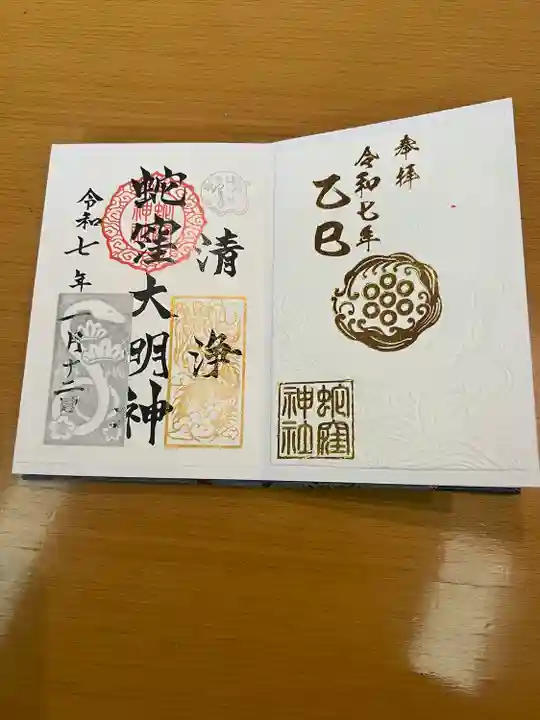 奉拝
令和七年
乙巳
蛇窪
神社
清
浄
蛇窪大明神
令和七年一月十二日